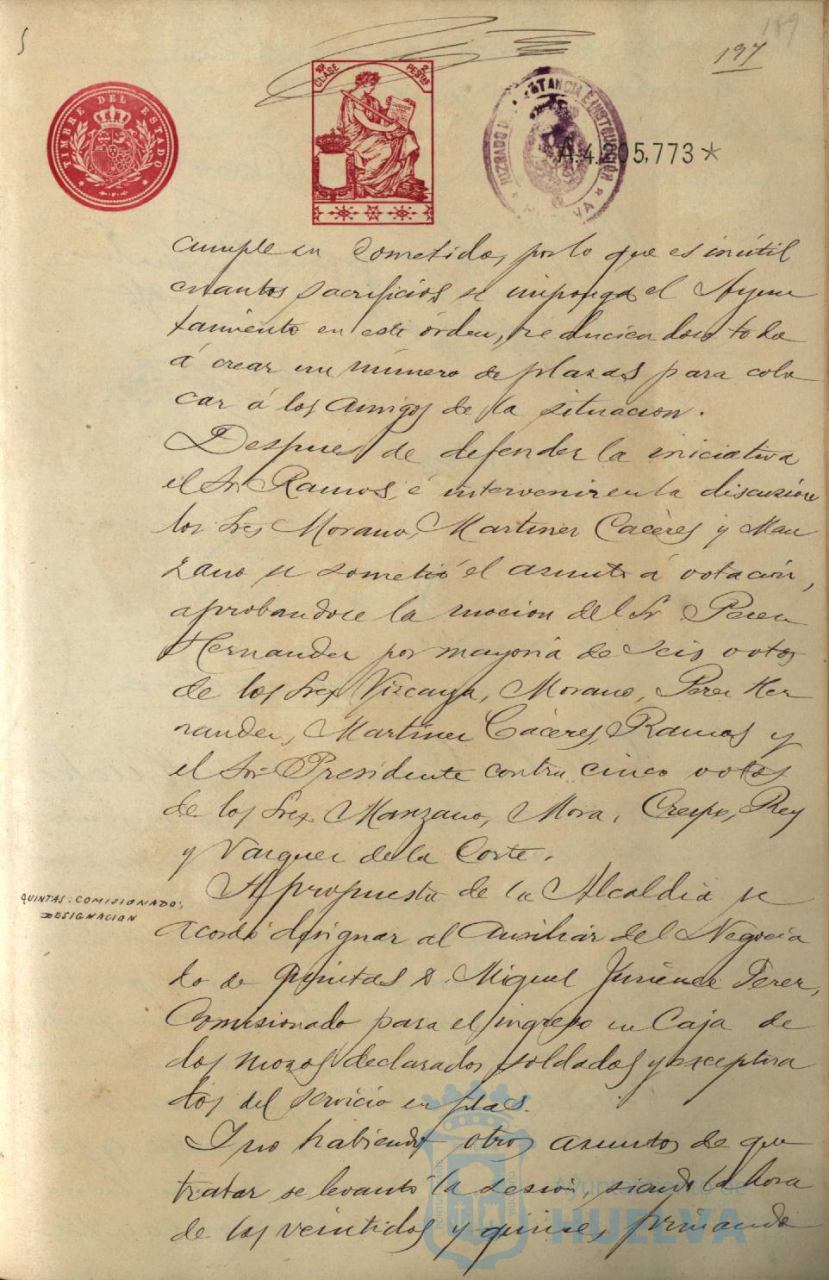 189
197
TIMBRE DEL ESTADO
10ª CLASE 2 PESETAS
JUZGADO DE INSTANCIA E INSTRUCCION
HUELVA
A.4.205,773*
cumple su cometido, por lo que es inútil
cuantos sacrificios se imponga el Ayun
tamiento en este órden, reduciendose todo
á crear un número de plazas para colo
car á los amigos de la situacion.
Despues de defender la iniciativa
el Sr. Ramos, é intervenir en la discusión
los Sres Morano, Martinez Cacères y Man
zano se sometió el asunto á votación,
aprobandoce la mocion del Sr. Perez
Hernandez por mayoria de seis votos
de los Sres Vizcaya, Morano, Perez Her
nandez, Martinez Cáceres, Ramos y
el Sr. Presidente contra cinco votos
de los Sres Manzano, Mora, Crespo, Rey
y Vazquez de la Corte.
QUINTAS: COMISIONADO:
DESIGNACION
A propuesta de la Alcaldia se
acordó designar al Auxiliar del Negocia
do de Quintas D. Miguel Jimenez Perez,
Comisionado para el ingreso en Caja de
los mozos declarados soldados y exceptua
dos del servicio en filas.
Y no habiendo otros asuntos de que
tratar se levantó la sesion, siendo la hora
de las veintidos y quince, firmando
Ayuntamiento de
HUELVA